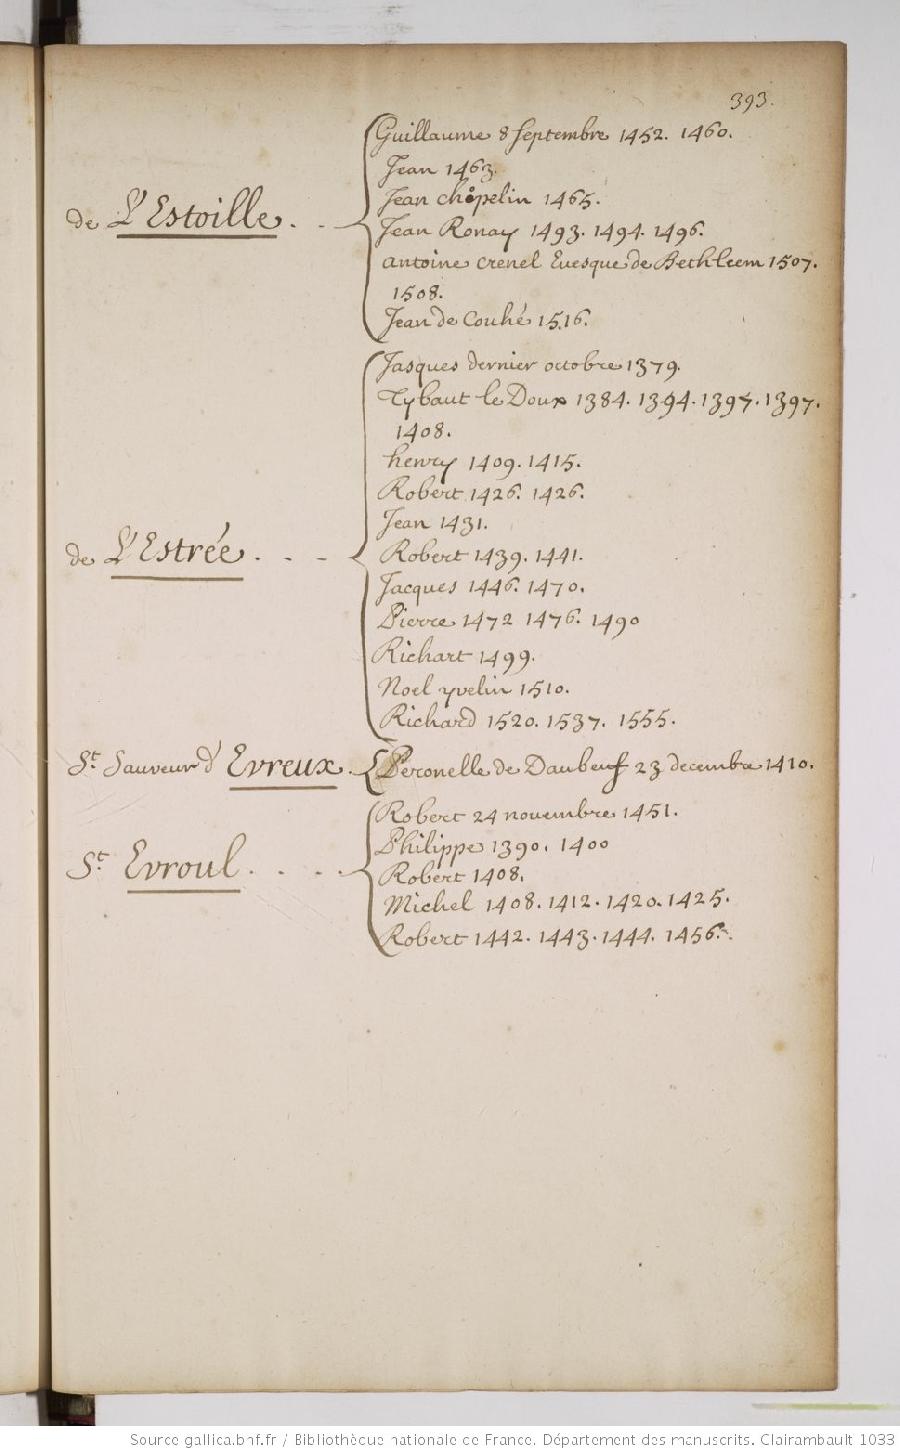 393.
Guillaume 8 septembre 1452. 1460.
Jean 1463.
Jean chopelin 1465.
de L'Estoille
Jean Ronay 1493. 1494. 1496.
antoine crenel Evesque de Bethleem 1507.
1508.
Jean de Couhé 1516.
Jasques dernier octobre 1379.
Tybaut le Doux 1384. 1394. 1397. 1397.
1408.
henry 1409. 1415.
Robert 1426. 1426.
Jean 1431.
de L'Estrée
Robert 1439. 1441.
Jacques 1446. 1470.
Pierre 1472 1476. 1490
Richart 1499.
Noel yvelin 1510.
Richard 1520. 1537. 1555.
St. Sauveur d'Evreux
Peronelle de Daubeuf 23 decembre 1410.
Robert 24 novembre 1451.
Philippe 1390. 1400
St. Evroul
Robert 1408.
Michel 1408. 1412. 1420. 1425.
Robert 1442. 1443. 1444. 1456.
Source gallica.bnf.fr / Bibliothèque nationale de France. Département des manuscrits. Clairambault 1033